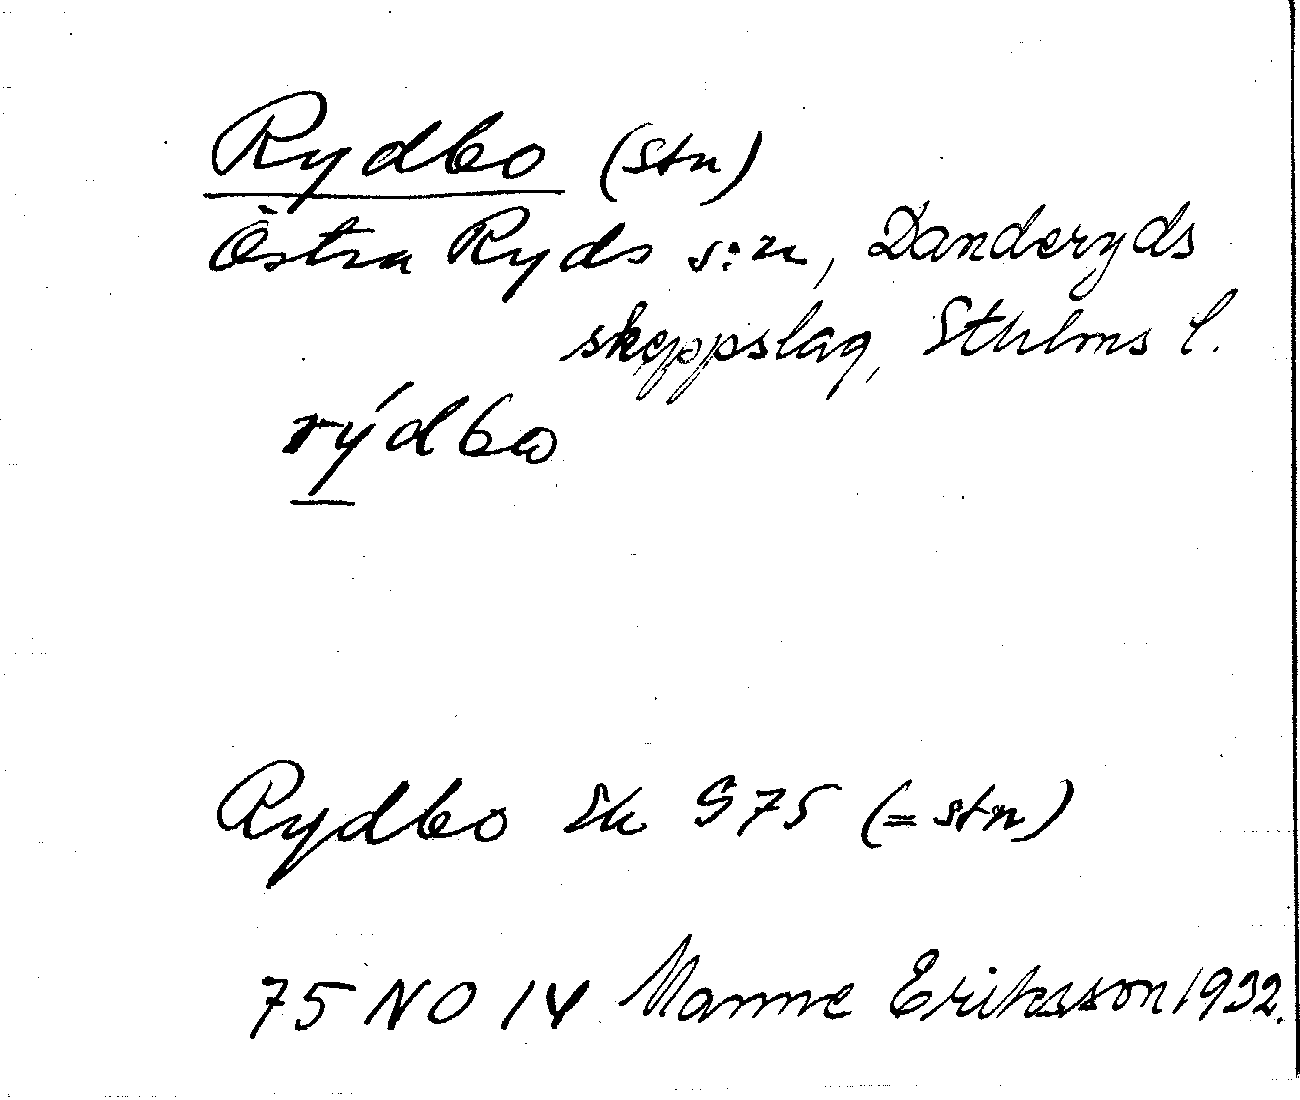 Rydbo (stn)
Östra Ryds s:n, Danderyds
skeppslag, Sthlms l.
rýdbω
Rydbo Ek S75 (= stn)
75 NO 14 Manne Eriksson 1932.